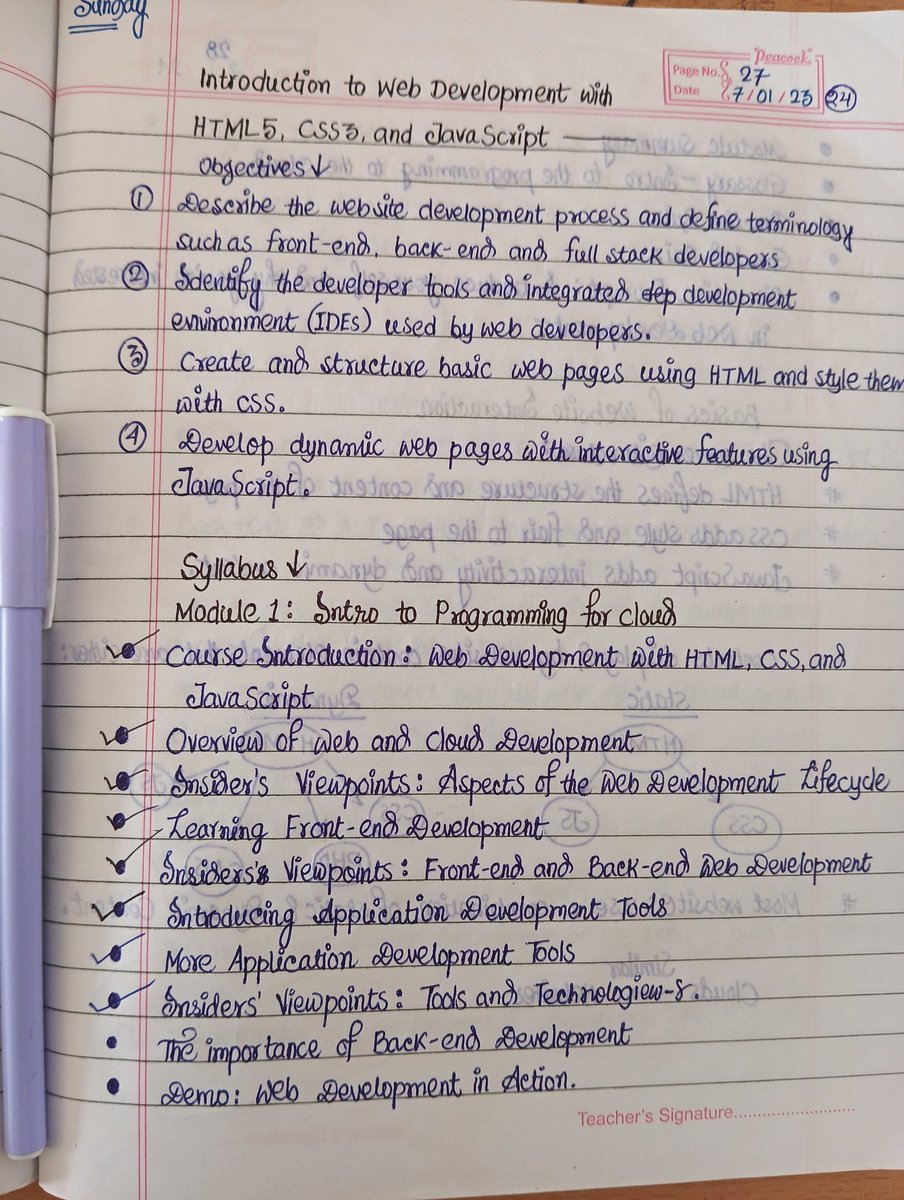 Sunday
Peacock
Page No. 27
Date 7/01/23 24
Introduction to Web Development with
HTML5, CSS3, and JavaScript
Objectives ↓
① Describe the website development process and define terminology
such as front-end, back-end and full stack developers
② Identify the developer tools and integrated dep development
environment (IDEs) used by web developers.
③ Create and structure basic web pages using HTML and style them
with CSS.
④ Develop dynamic web pages with interactive features using
JavaScript.
Syllabus ↓
Module 1: Intro to Programming for Cloud
• Course Introduction: Web Development with HTML, CSS, and
JavaScript
• Overview of Web and Cloud Development
• Insider's Viewpoints: Aspects of the Web Development Lifecycle
• Learning Front-end Development
• Insiders's Viewpoints: Front-end and Back-end Web Development
• Introducing Application Development Tools
• More Application Development Tools
• Insiders' Viewpoints: Tools and Technologiew-s.
• The importance of Back-end Development
• Demo: Web Development in Action.
Teacher's Signature